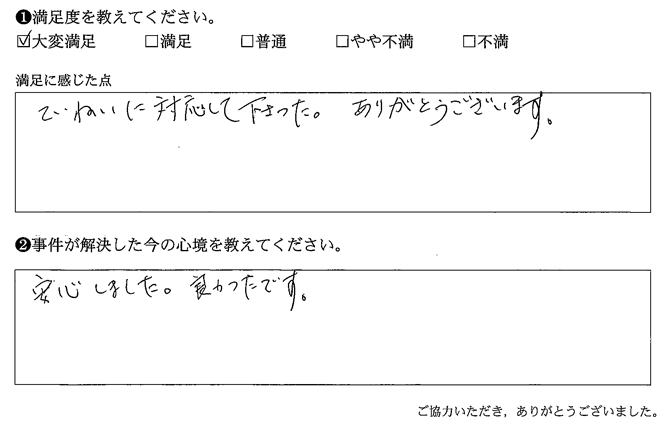 ❶満足度を教えてください。
☑大変満足 □満足 □普通 □やや不満 □不満
満足に感じた点
ていねいに対応して下さった。 ありがとうございます。
❷事件が解決した今の心境を教えてください。
安心しました。良かったです。
ご協力いただき，ありがとうございました。